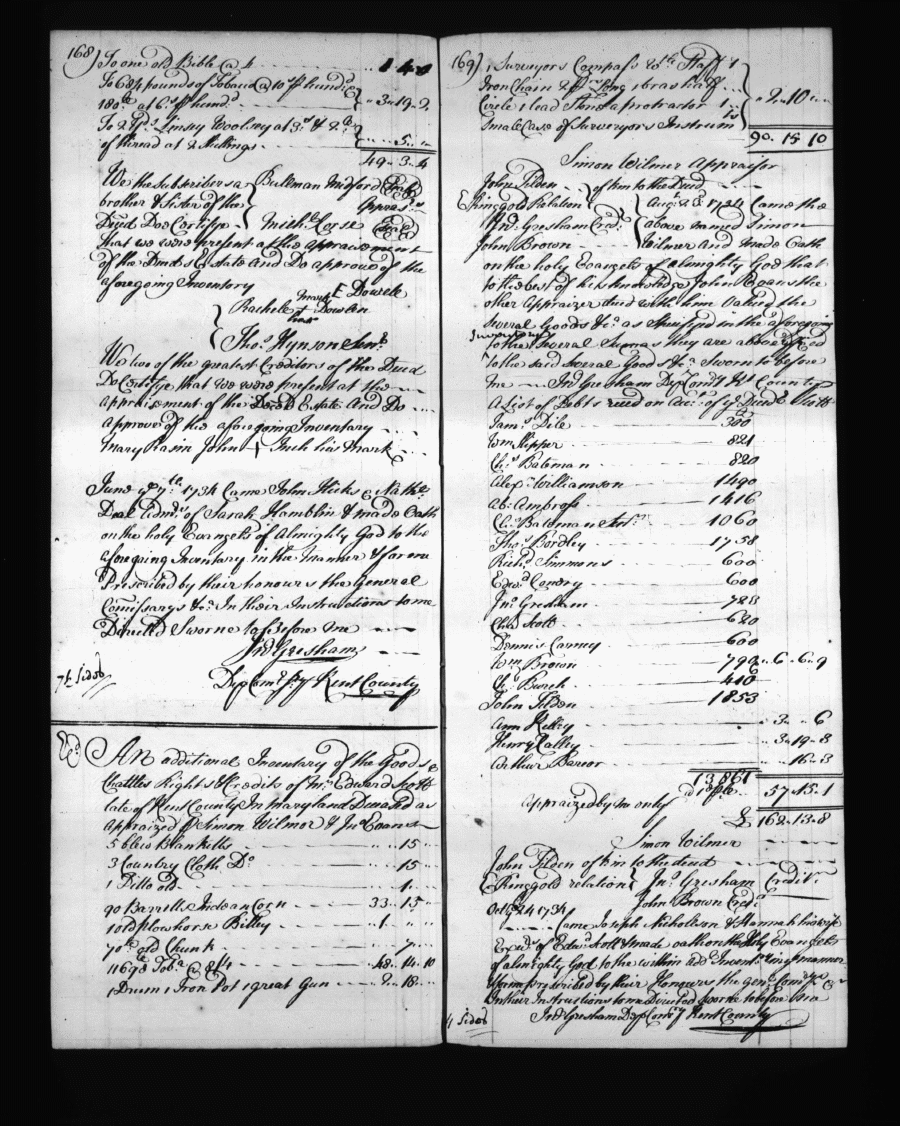 168) To one old Bible @ 4 .. 1 4 0
To 684 pounds of Tobacco @ 10s p hundd
180 at 6s p hund .. 3..19..2
To 2 yds Linsey Woolsey at 3s & 2
of thread at 2 shillings .. 5..
49..3..4
We the Subscribers a Bullman Midford Seal
brother & Sister of the Apprasrs
Deced Doe Certifye Michl Corse Seal
that we were present at the appraisement
of the Deceds Estate And Do approve of the
aforegoing Inventory
Rachell Dowlen
mark
Thos Hynson Senr
We two of the greatest Creditors of the Deced
Do Certifye that we were present at the
appraisement of the Deceds Estate And Do
approve of the aforegoing Inventory
Mary Rasin John Inch his Mark
June ye 7th 1734 Came John Hicks & Nathl
Deal Admrs of Sarah Hamblin & made Oath
on the holy Evangels of Almighty God to the
aforegoing Inventory in the Manner & form
Prescribed by their honours the General
Comissarys &c In their Instructions to me
Directed Sworne to before me
Jno Gresham
Dep Comry of Kent County
7½ sides
An additional Inventory of the Goods
Chattles Rights & Credits of Mr Edward Scott
late of Kent County In Maryland Deceased as
Appraized p Simon Wilmer & Jno Evans
5 blew Blanketts .. 15 ..
3 Country Cloth Do .. 15 ..
1 Ditto old .. 1 ..
90 Barrells Indean Corn 33..15..
1 old plow horse Billey 1 .. ..
70 old Chunk 7 ..
11698 Tobo @ 48..14..10
1 Drum 1 Iron Pot 1 great Gun 2..18..
169) 1 Surveyors Compass & Staff 1
Iron Chain 2 brass half
Circle 1 lead Stone a protractor 1
Small Case of Surveyors Instrum .. 2..10..
90. 15 10
Simon Wilmer Appraiser
John Tilden of kin to the Deced
Ringgold Relation Augt 28 1734 Came the
Jno Gresham Credr above named Simon
John Brown Wilmer And made Oath
on the holy Evangels of almighty God that
to the best of his knowledge John Evans the
other Appraizer did with him Value the
Several Goods &c as Specified in the aforegoing
Inventory
to the Several Summs they are above
to the said Several Goods &c Sworn to before
me Jno Gresham Dep Comry Kt County
A List of Debts recd on Acct of ye Deced Scott
Jams Dile 300
Wm Skipper 821
Chs Bateman 820
Alexr Williamson 1490
Ab. Ambross 1416
Chs Bateman 1060
Thos Bordley 1758
Richd Simmons 600
Edwd Condry 600
Jno Gresham 728
Chas Scott 620
Dennis Carney 600
Wm Brown 792..6..6..9
Burch 410
John Tilden 1853
Ann Kelley .. 3.. ..6
Henry Calley .. 3..19..8
Arthur .. 16..3
13861
57..15..1
Appraized by me only
£ 162..13..8
Simon Wilmer
John Tilden of kin to the deced
Ringgold relation Jno Gresham Creditr
John Brown Credr
Octr ye 24 1734
Came Joseph Nicholson & Hannah his wife
Exers of Edwd Scott & made oath on the Holy Evangels
of almighty God to the within add Inventy in manner
& form prescribed by their Honours the Genl Comrys
In their Instructions to me Directed Sworne to before me
Jno Gresham Dep Comry of Kent County
4 sides